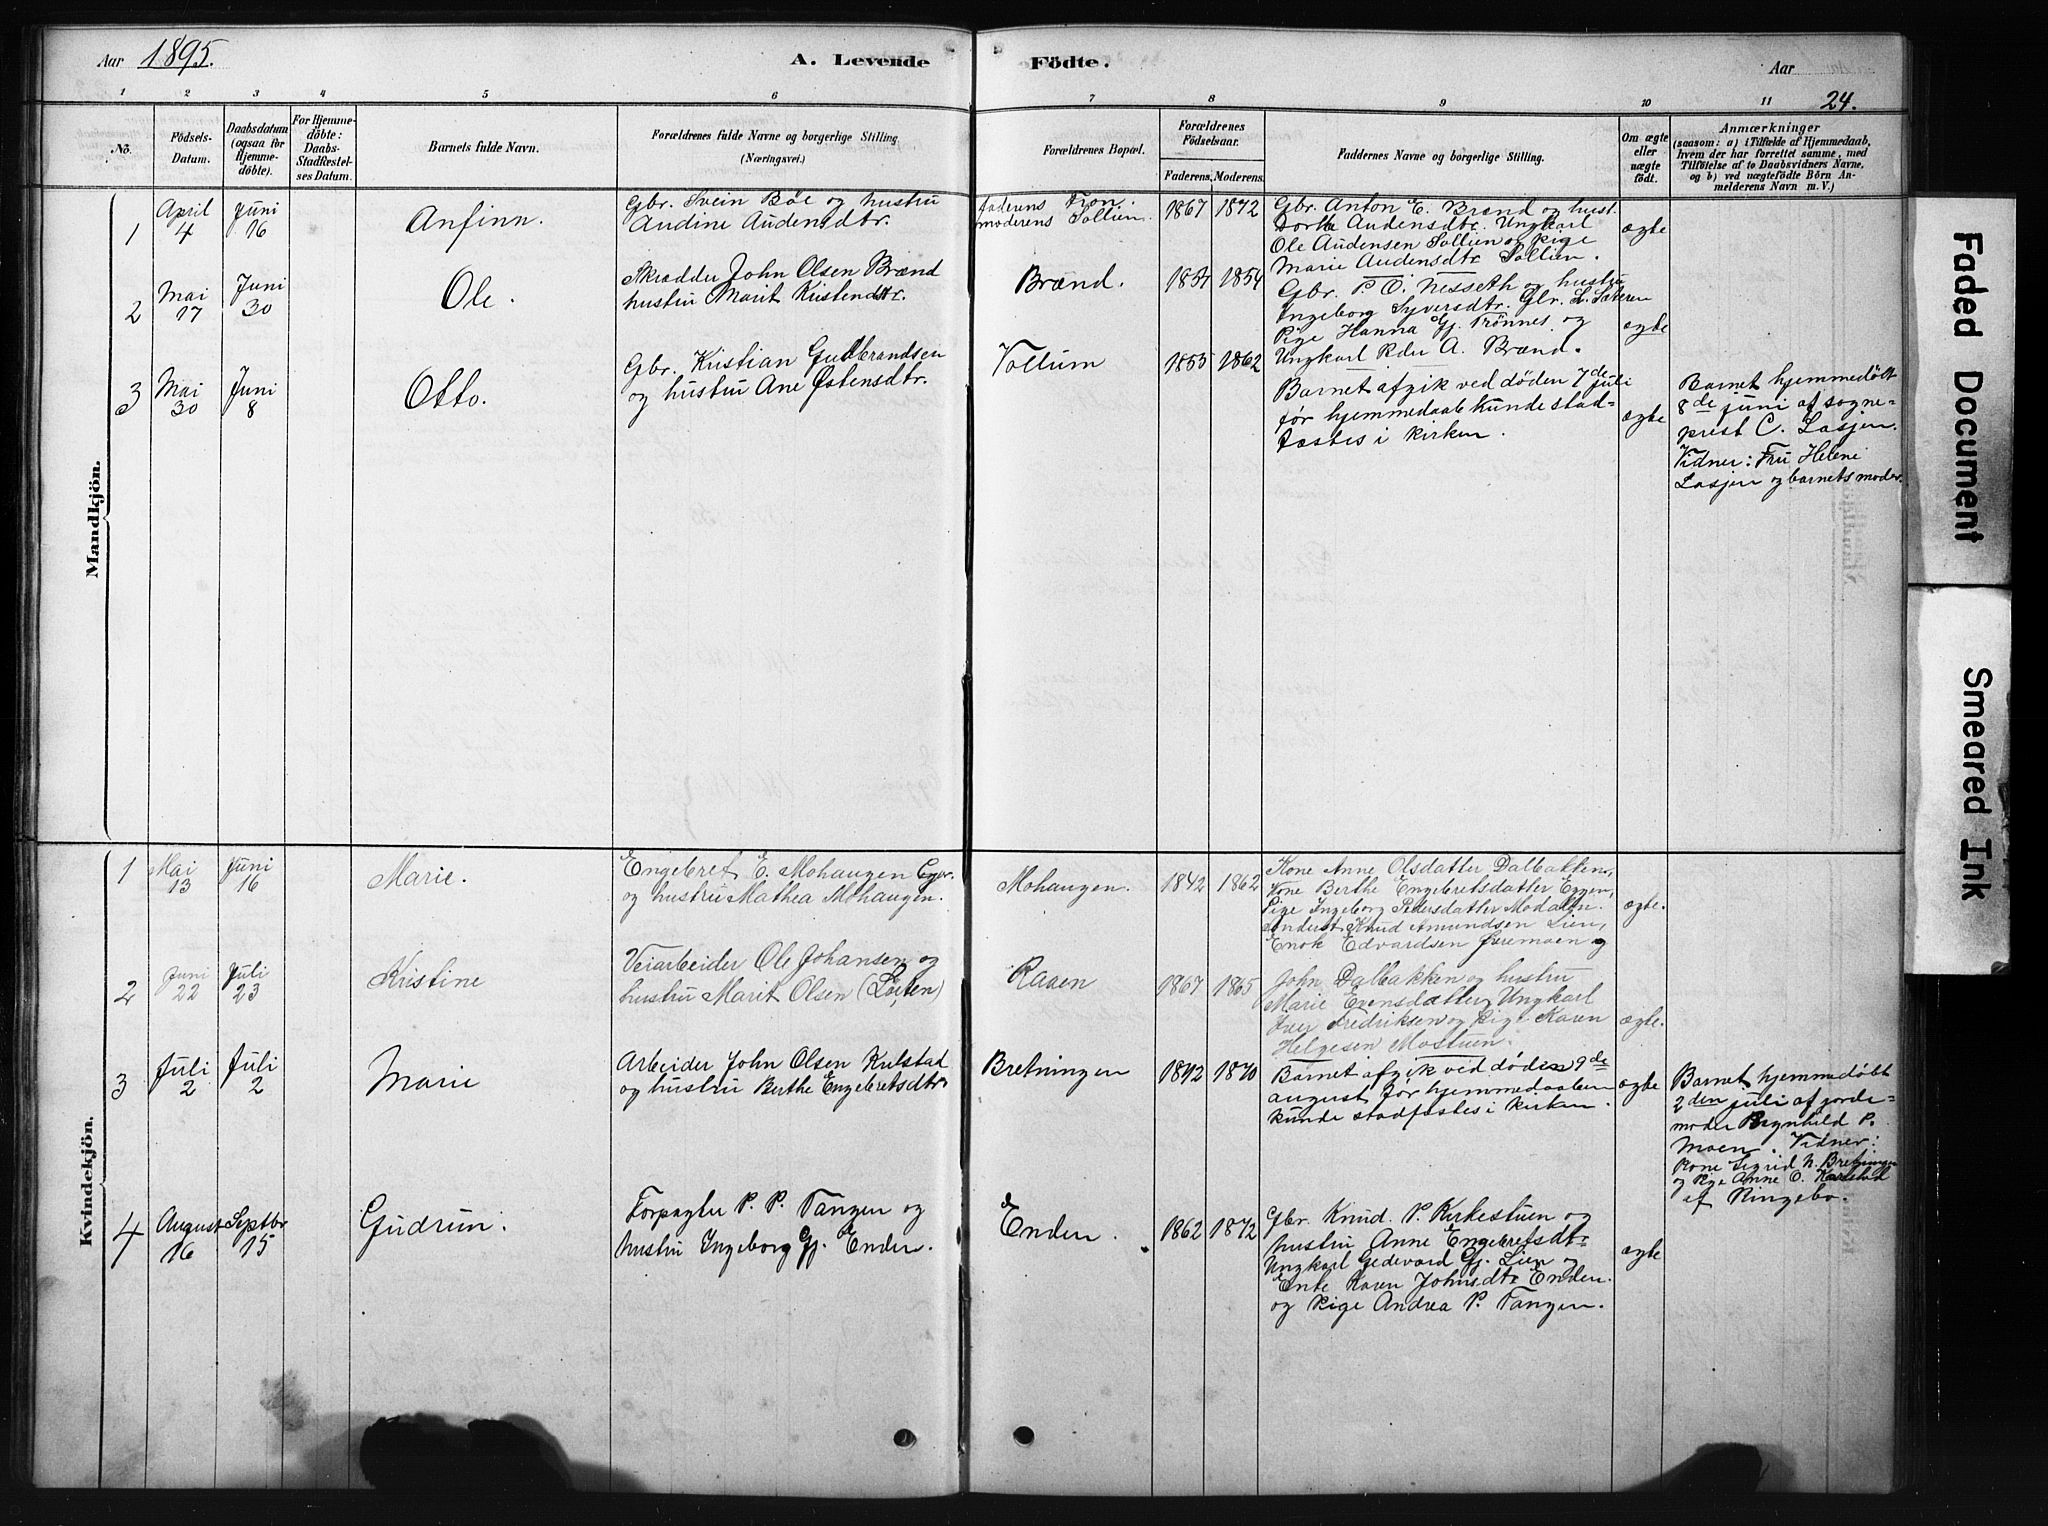 Aar 1895.
A. Levende Födte.
Aar
24.
1 2 3 4 5 6 7 8 9 10 11
No.
Födsels-Datum.
Daabsdatum (ogsaa for Hjemmedöbte).
For Hjemmedöbte: Daabs-Stadfæstelses Datum.
Barnets fulde Navn.
Forældrenes fulde Navne og borgerlige Stilling (Næringsvei.)
Forældrenes Bopæl.
Forældrenes Födselsaar.
Faderens. Moderens.
Faddernes Navne og borgerlige Stilling.
Om ægte eller uægte födt.
Anmærkninger
(saasom: a) i Tilfælde af Hjemmedaab,
hvem der har forrettet samme, med
Tilföielse af to Daabsvidners Navne,
og b) ved uægtefödte Börn Anmelderens Navn m. V.)
Mandkjön.
1
April 4
Juni 16
Anfinn.
Gbr. Svein Böe og hustru
Audine Audensdtr.
faderens Fron.
moderens Sollien.
1867 1872
Gbr. Anton E. Brænd og hust.
Dorthe Audensdtr. Ungkarl
Ole Audensen Sollien og Pige
Marie Audensdtr Sollien.
ægte
2
Mai 17
Juni 30
Ole.
Skrædder John Olsen Brænd
hustru Marit Kristensdtr.
Brænd.
1854
Gbr. P. O. Nesseth og hustru
Ingeborg Syversdtr. Gbr. L. Sæteren
Pige Hanna Gj. Trønnes og
Ungkarl Peder A. Brænd.
ægte
3
Mai 30
Juni 8
Otto.
Gbr. Kristian Gudbrandsen
og hustru Ane Østensdtr.
Vollum
1855 1862
Barnet afgik ved døden 7de juli
før hjemmedaab kunde stad-
fæstes i kirken.
ægte
Barnet hjemmedøbt
8de juni af sogne=
prest C. Lasjen.
Vidner: Fru Helene
Lasjen og barnets moder.
Kvindekjön.
1
Mai 13
Juni 16
Marie.
Engebret E. Mohaugen
og hustru Mathea Mohaugen.
Mohaugen.
1842 1862
Kone Anne Olsdatter Dalbakken,
Kone Berthe Engebretsdatter Eggen,
Pige Ingeborg Pedersdatter Modalen.
Inderst Knud Amundsen Lien,
Enok Edvardsen Øremoen og
ægte.
2
Juni 22
Juli 23
Kristine
Veiarbeider Ole Johansen og
hustru Marit Olsen (Løiten)
Raaen
1867 1865
John Dalbakken og hustru
Marie Evensdatter, Ungkarl
Iver Fredriksen og Pige Karen
Helgesen Mostuen.
ægte.
3
Juli 2
Juli 2
Marie
Arbeider John Olsen Kulstad
og hustru Berthe Engebretsdtr
Bretningen
1842 1870
Barnet afgik ved døden 9de
august før hjemmedaaben
kunde stadfæstes i kirken.
ægte
Barnet hjemmedøbt
2den juli af jorde=
moder Brynhild P.
Moen. Vidner:
Kone Sigrid N. Bretningen
og Pige Anne O. Kulstad
af Ringebo.
4
August 16
Septbr 15
Gudrun.
Forpagter P. P. Tangen og
hustru Ingeborg Gj. Enden.
Enden.
1862 1872
Gbr. Knud P. Kirkestuen og
hustru Anne Engebretsdtr
Ungkarl Gedevard Gj. Lien og
Enke Karen Johnsdtr Enden.
og Pige Andrea P. Tangen.
ægte
Faded Document
Smeared Ink